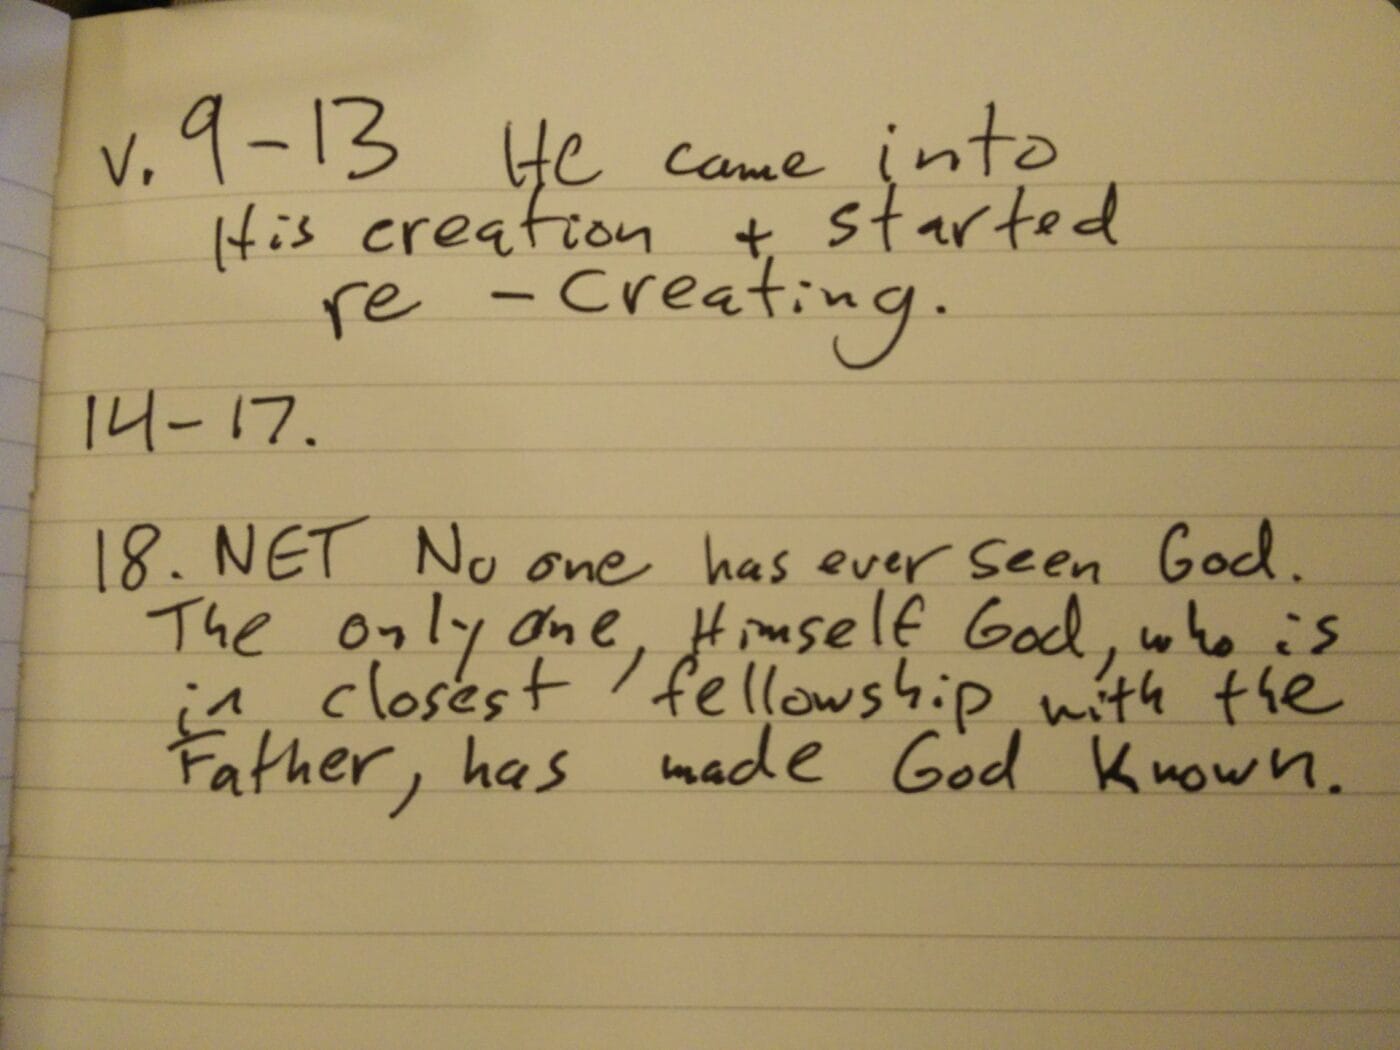 v. 9-13 He came into
His creation + started
re - Creating.
14-17.
18. NET No one has ever seen God.
The only one, Himself God, who is
in closest fellowship with the
Father, has made God Known.